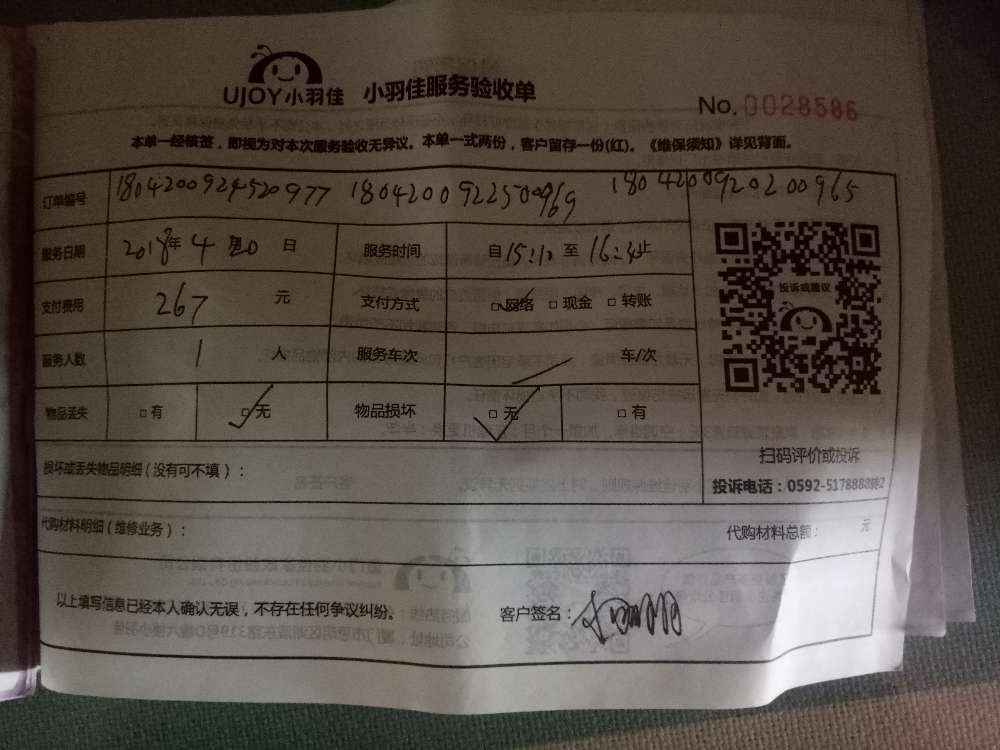 UJOY小羽佳 小羽佳服务验收单
No. 0028586
本单一经核签，即视为对本次服务验收无异议。本单一式两份，客户留存一份(红)。《维保须知》详见背面。
订单编号 1804200924520977 1804200922500969 1804200920200965
服务日期 2018年4月20日 服务时间 自15:10至16:40止
支付费用 267 元 支付方式 □网络 □现金 □转账
投诉或建议
服务人数 1 人 服务车次 车/次
物品丢失 □有 □无 物品损坏 □无 □有
扫码评价或投诉
损坏或丢失物品明细（没有可不填）：
投诉电话：0592-5178888
代购材料明细（维修业务）： 代购材料总额： 元
以上填写信息已经本人确认无误，不存在任何争议纠纷。 客户签名：